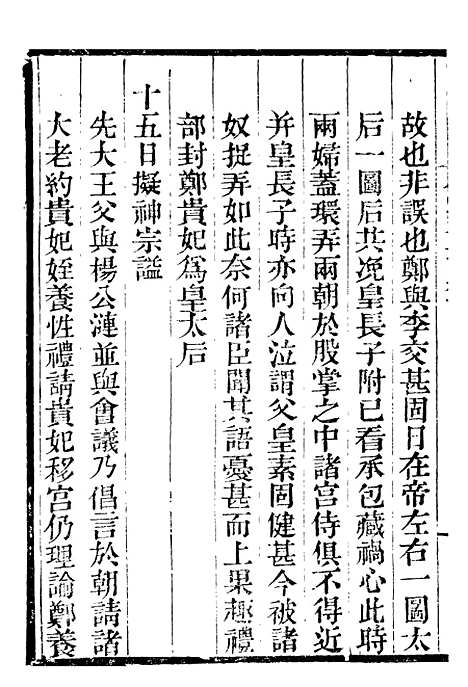 故也非誤也鄭與李交甚固日在帝左右一圖太
后一圖后其凂皇長子附已看承包藏禍心此時
兩婦蓋環弄兩朝於股掌之中諸宮侍俱不得近
并皇長子時亦向人泣謂父皇素固健甚今被諸
奴捉弄如此奈何諸臣聞其語憂甚而上果趣禮
部封鄭貴妃爲皇太后
十五日擬神宗謚
先大王父與楊公漣並與會議乃倡言於朝請諸
大老約貴妃姪養性禮請貴妃移宮仍理諭鄭養